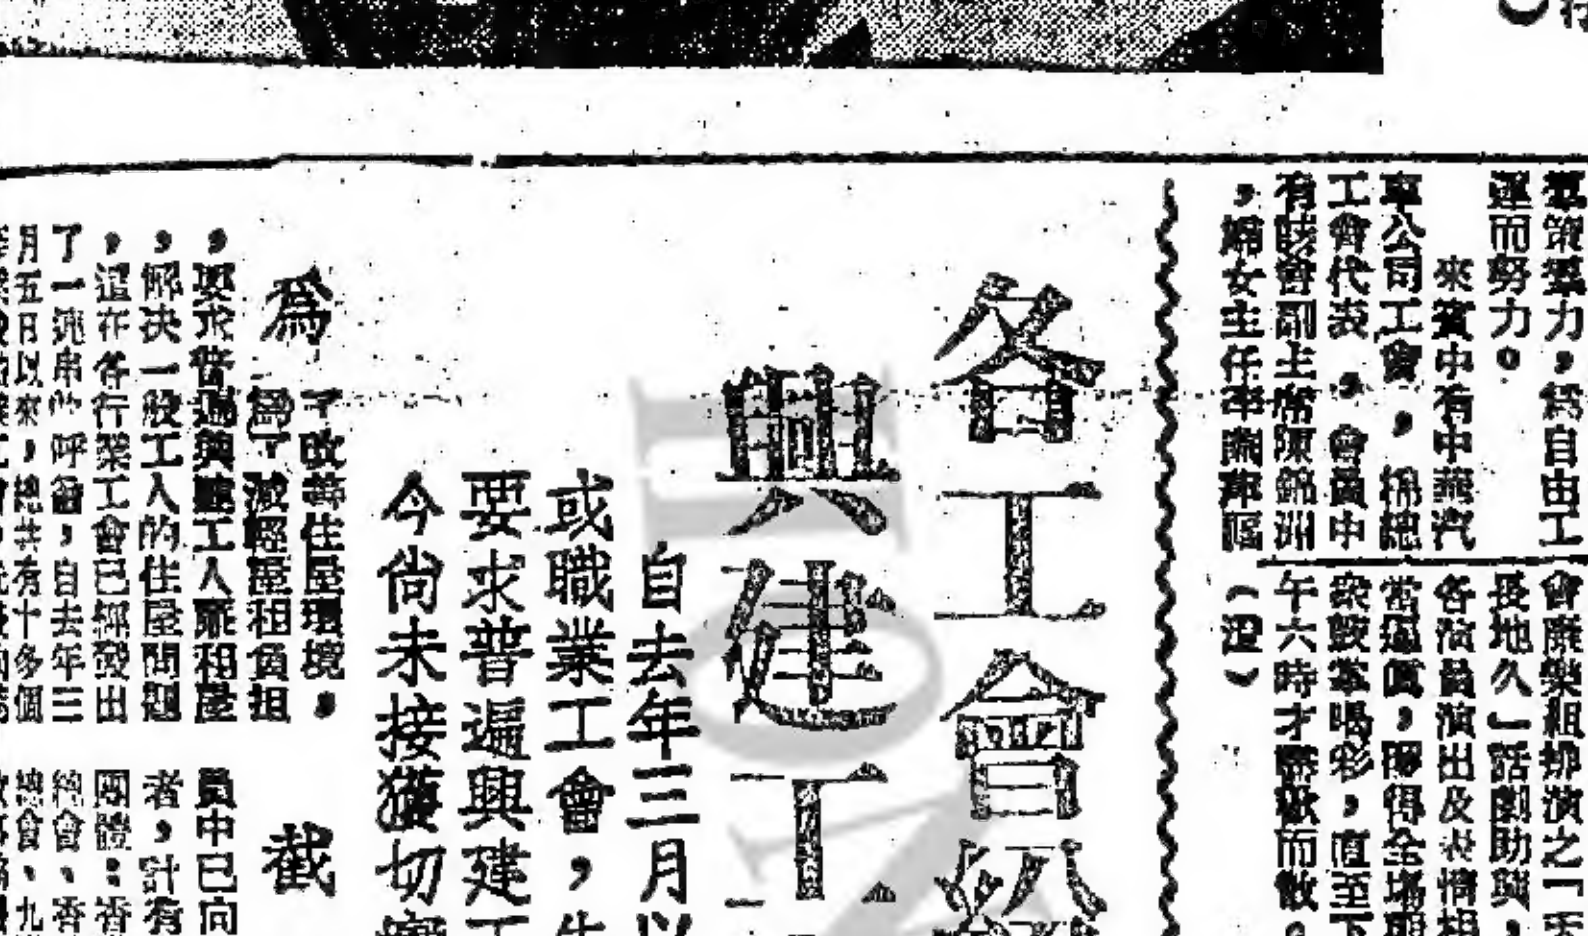 羣策羣力，為自由工
運而努力。
來賓中有中華汽
車公司工會，棉總
工會代表，會員中
有該會副主席陳錦洲
，婦女主任
會康樂組排演之「天
長地久」話劇助興，
各演員演出及表情相
當逼真，博得全場觀
衆鼓掌喝彩，直至下
午六時才盡歡而散。
（澄）
各工會紛
興建工
自去年三月以
或職業工會，先
要求普遍興建工
今尚未接獲切實
為
了改善住屋環境，
為了減輕屋租負担
，要求普遍興建工人廉租屋
，解决一般工人的住屋問題
，這在各行業工會已經發出
了一連串的呼籲，自去年三
月五日以來，總共有十多個
截
員中已向
者，計有
團體：香
總會、香
總會、九